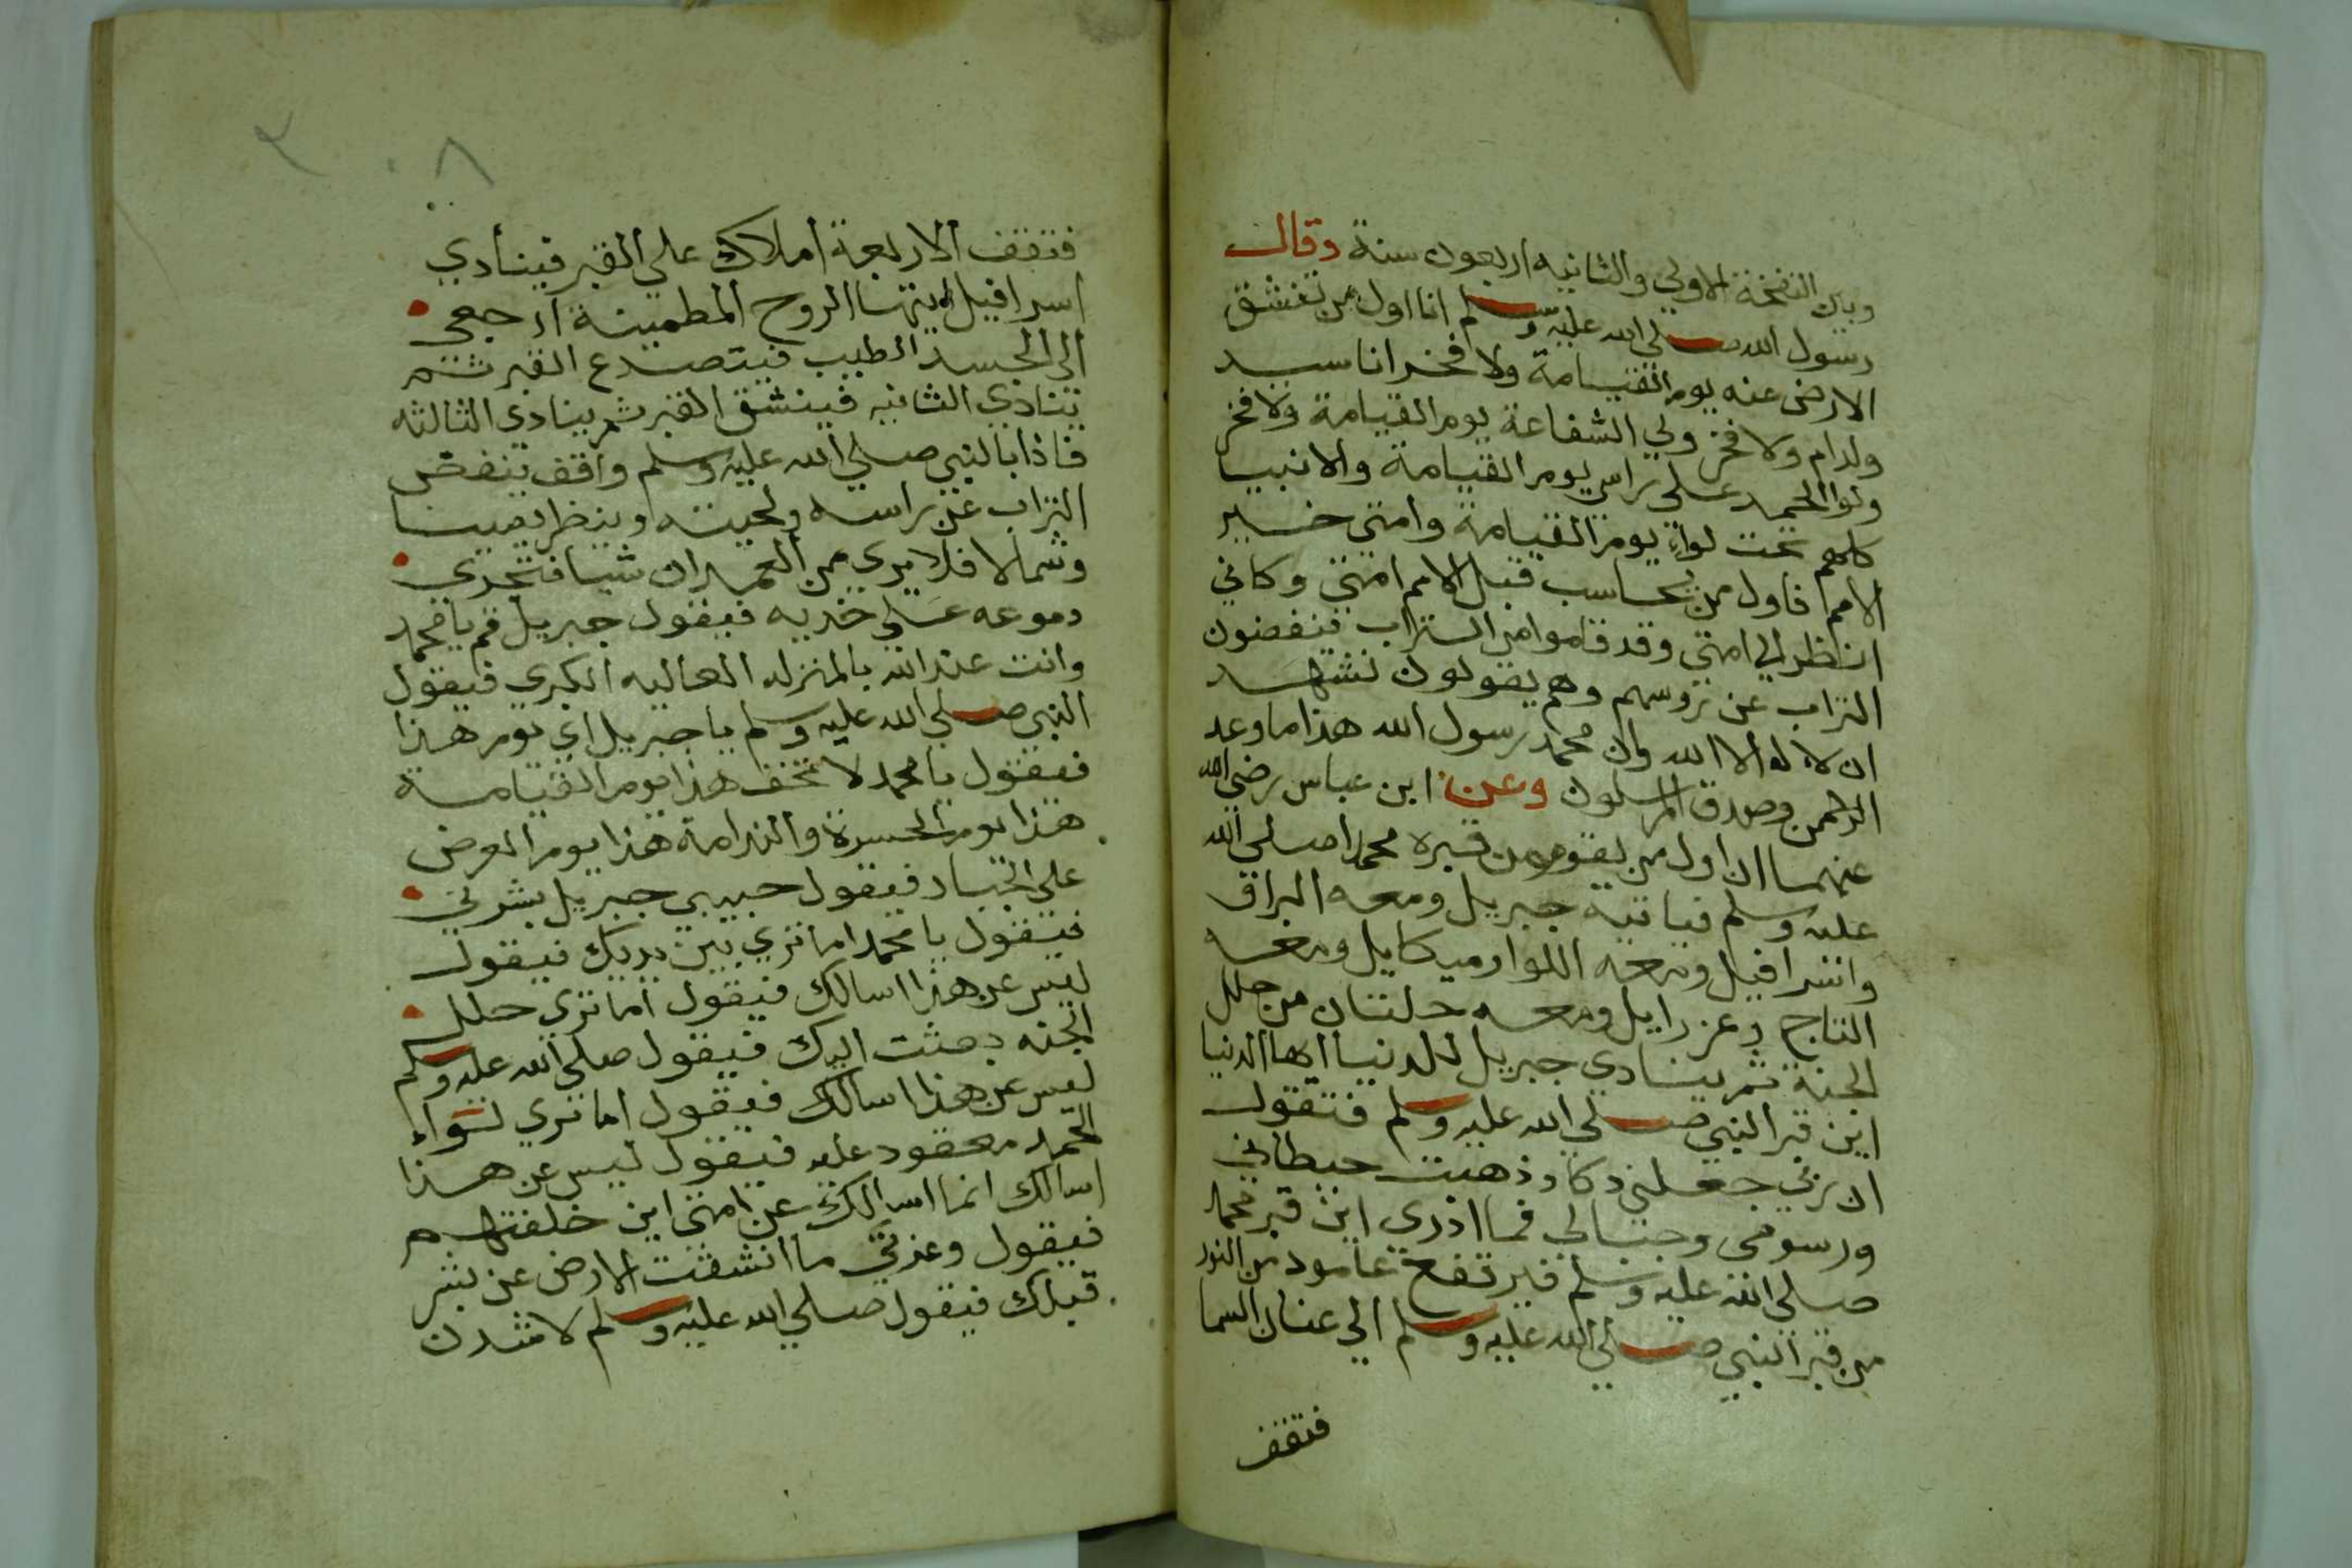 وبين النفخة الاولي والثانيه اربعون سنة وقال
رسول الله صلي الله عليه وسلم انا اول من تنشق
الارض عنه يوم القيامة ولا فخر انا سيد
ولدادم ولا فخر ولي الشفاعة يوم القيامة ولا فخر
ولوا الحمد علي راسي يوم القيامة والانبيا
كلهم تحت لواي يوم القيامة وامتي خير
الامم فاول من يحاسب قبل الامم امتي وكاني
انظر الي امتي وقد قاموا من التراب ينفضون
التراب عن روسهم وهم يقولون نشهد
ان لا اله الا الله وان محمد رسول الله هذا ما وعد
الرحمن وصدق المرسلون وعن ابن عباس رضي الله
عنهما ان اول من يقوم من قبره محمدا صلي الله
عليه وسلم فياتيه جبريل ومعه البراق
واسرافيل ومعه اللوا وميكايل ومعه
التاج وعزرايل ومعه حلتان من حلل
الجنة ثم ينادي جبريل للدنيا ايها الدنيا
اين قبر النبي صلي الله عليه وسلم فتقول
ان ربي جعلني دكا وذهبت حيطاني
ورسومي وجبالي فما ادري اين قبر محمد
صلي الله عليه وسلم فيرتفع عامود من النور
من قبر النبي صلي الله عليه وسلم الي عنان السما
فتقف
٨
٢
فتقف الاربعة املاك علي القبر فينادي
اسرافيل ايتها الروح المطمينة ارجعي
الي الجسد الطيب فيتصدع القبر ثم
ينادي الثانيه فينشق القبر ثم ينادي الثالثه
فاذا بالنبي صلي الله عليه وسلم واقف ينفض
التراب عن راسه ولحيته وينظر يمينا
وشمالا فلا يري من العمران شيا فتجري
دموعه علي خديه فيقول جبريل قم يا محمد
وانت عند الله بالمنزله العاليه الكبري فيقول
النبي صلي الله عليه وسلم يا جبريل اي يوم هذا
فيقول يا محمد لا تخف هذا يوم القيامة
هذا يوم الحسرة والندامة هذا يوم العرض
علي الجبار فيقول حبيبي جبريل بشرني
فيقول يا محمد اما تري بين يديك فيقول
ليس عن هذا اسالك فيقول اما تري حلل
الجنه بعثت اليك فيقول صلي الله عليه وسلم
ليس عن هذا اسالك فيقول اما تري لواء
الحمد معقود عليه فيقول ليس عن هذا
اسالك انما اسالك عن امتي اين خلفتهم
فيقول وعزتي ما انشقت الارض عن بشر
قبلك فيقول صلي الله عليه وسلم لاشدن